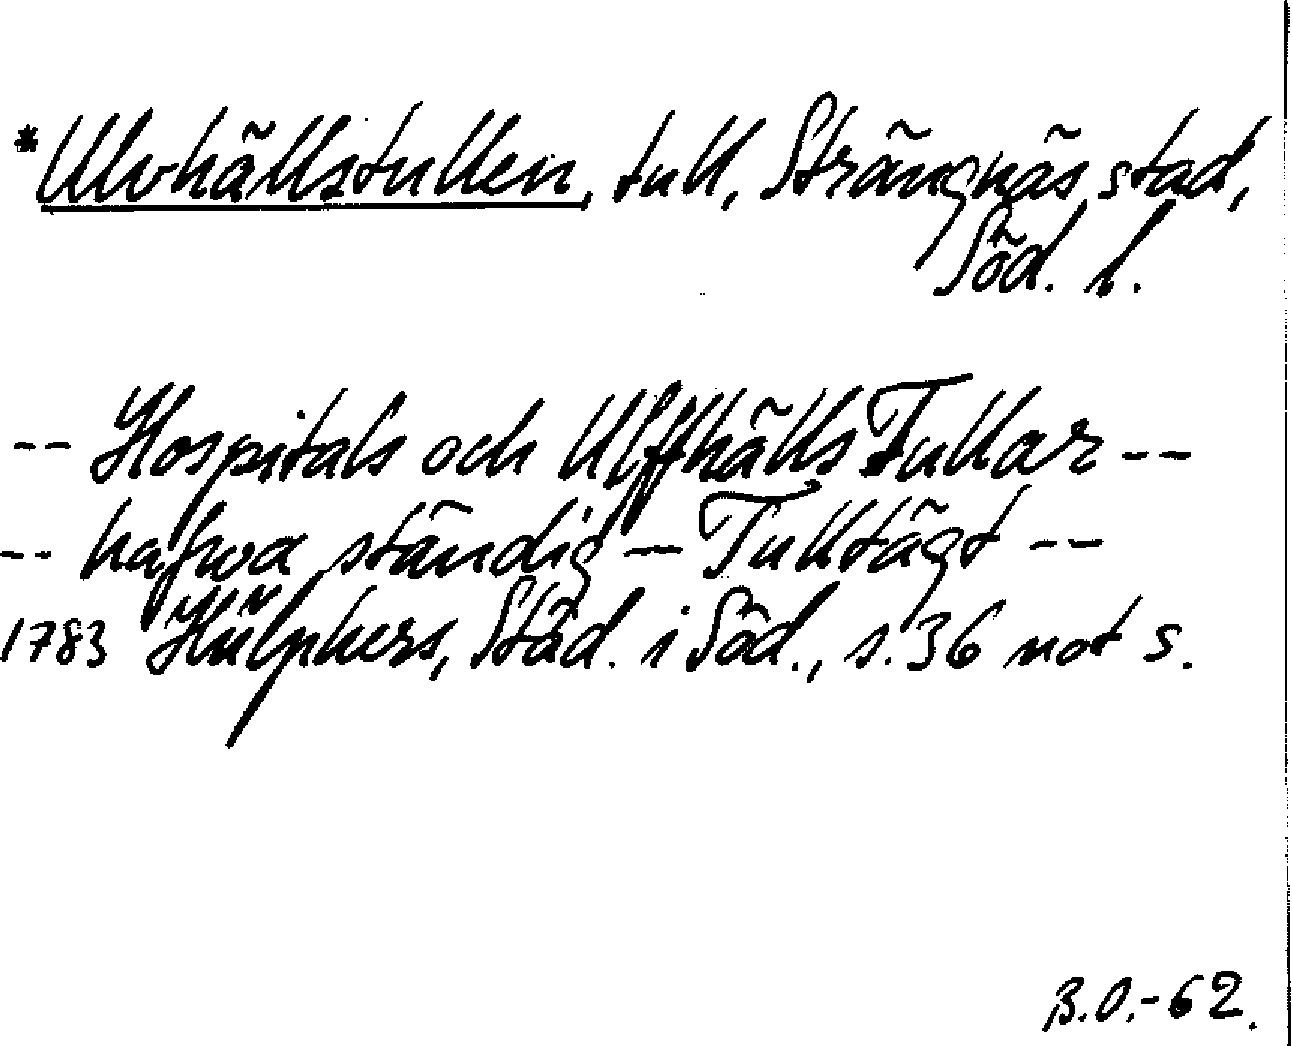 *Ulvhällstullen, tull, Strängnäs stad,
Söd. l.
-- Hospitals och Ulffhälls Tullar --
-- hafwa ständig -- Tulltägt --
1783 Hülphers, Städ. i Söd., s. 36 not s.
B.O.-62.